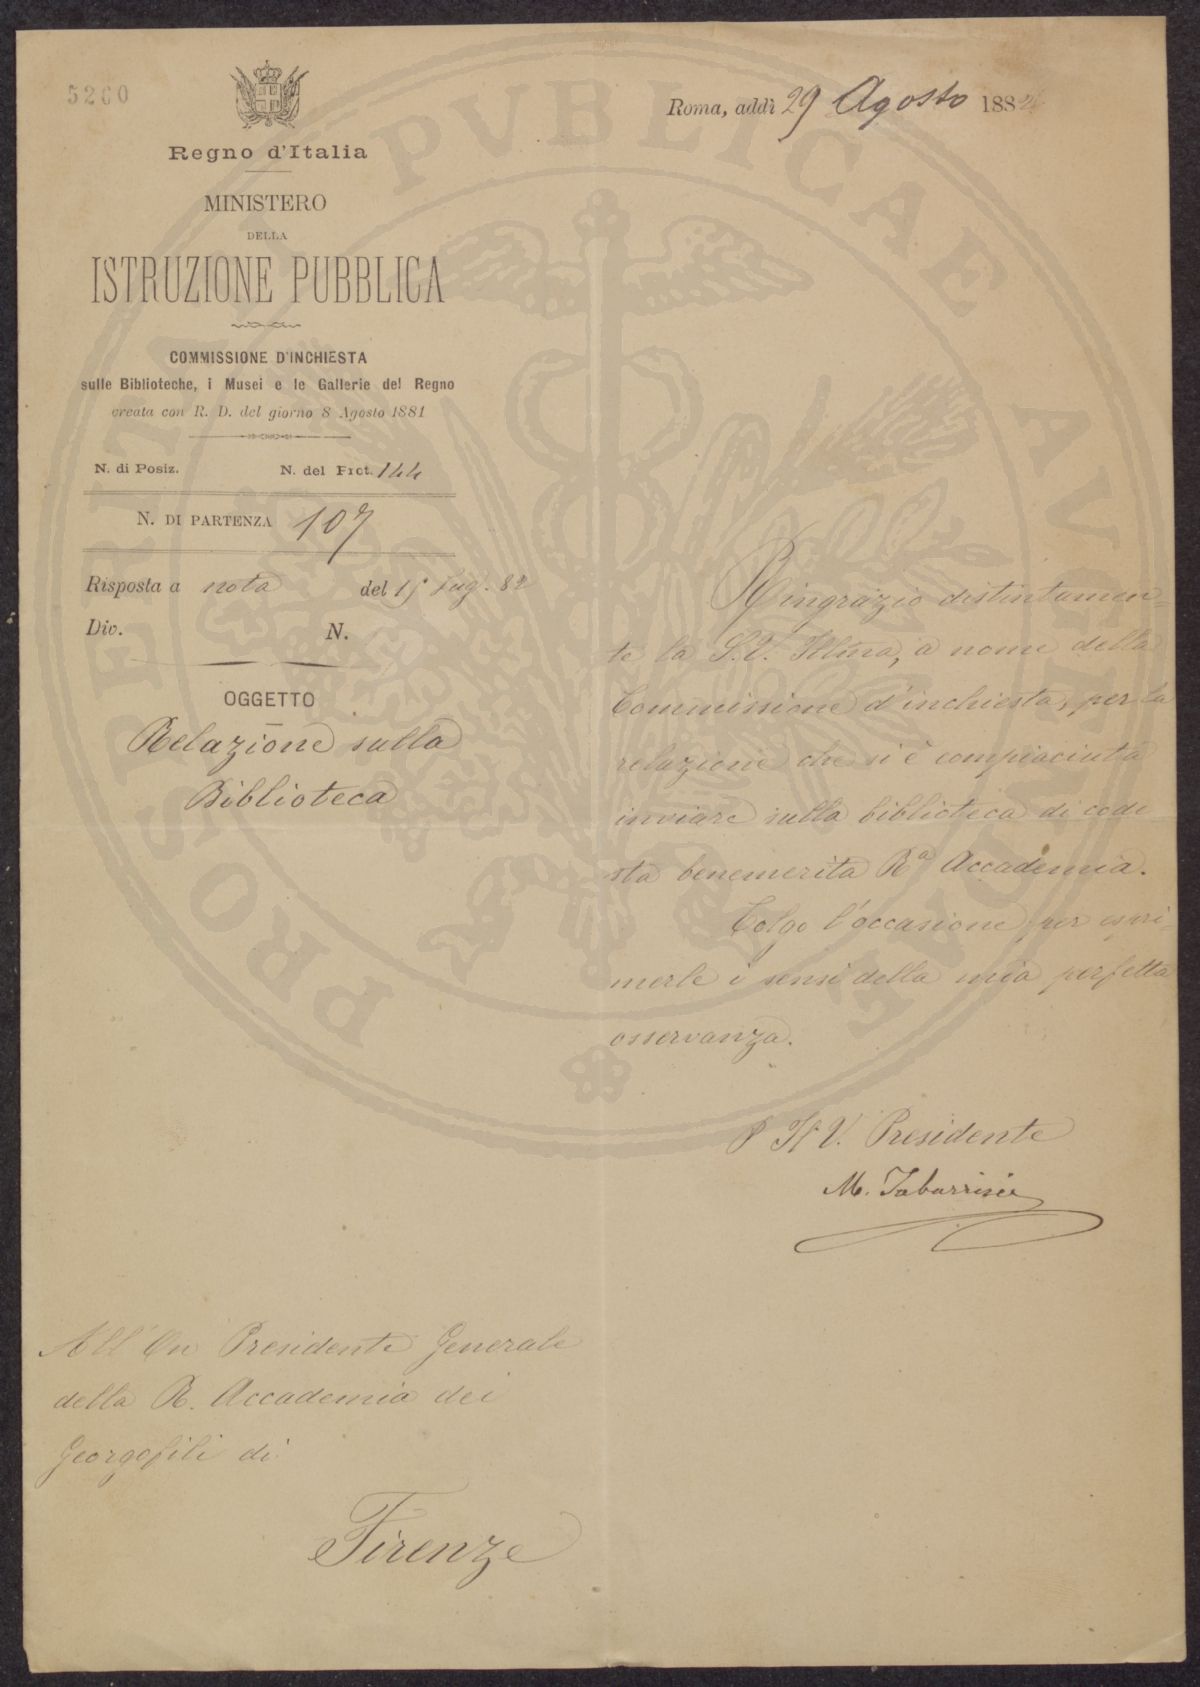 5260
Roma, addì 29 Agosto 1882
Regno d'Italia
MINISTERO
DELLA
ISTRUZIONE PUBBLICA
COMMISSIONE D'INCHIESTA
sulle Biblioteche, i Musei e le Gallerie del Regno
creata con R. D. del giorno 8 Agosto 1881
N. di Posiz. N. del Prot. 144
N. DI PARTENZA 107
Risposta a nota del 15 Lug. 82
Div. N.
OGGETTO
Relazione sulla
Biblioteca
Ringrazio distintamen-
te la S.V. Illma, a nome della
Commissione d'inchiesta, per la
relazione che si è compiaciuta
inviare sulla biblioteca di code
sta benemerita Ra Accademia.
Colgo l'occasione per espri-
merle i sensi della mia perfetta
osservanza.
Il V. Presidente
M. Tabarrini
All'On Presidente Generale
della R. Accademia dei
Georgofili di
Firenze
PROSPERITATI PVBLICAE AVGENDAE